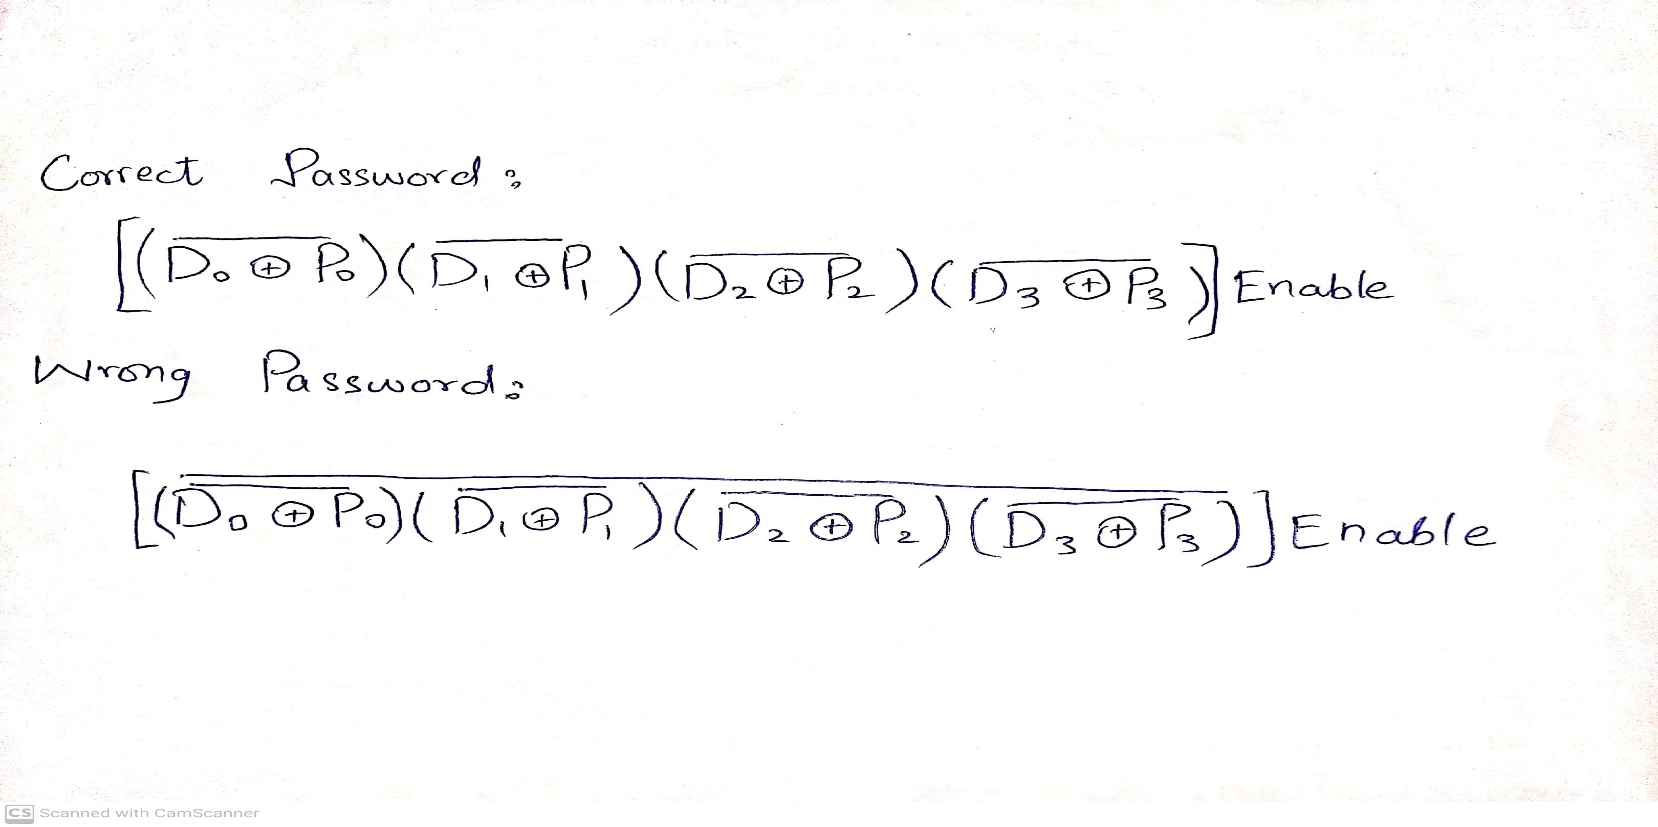 Correct Password:
[(D̅₀̅ ̅⊕̅ ̅P̅₀)(D̅₁̅ ̅⊕̅ ̅P̅₁)(D̅₂̅ ̅⊕̅ ̅P̅₂)(D̅₃̅ ̅⊕̅ ̅P̅₃)] Enable
Wrong Password:
[\overline{(\overline{D₀ ⊕ P₀})(\overline{D₁ ⊕ P₁})(\overline{D₂ ⊕ P₂})(\overline{D₃ ⊕ P₃})}] Enable
CS Scanned with CamScanner